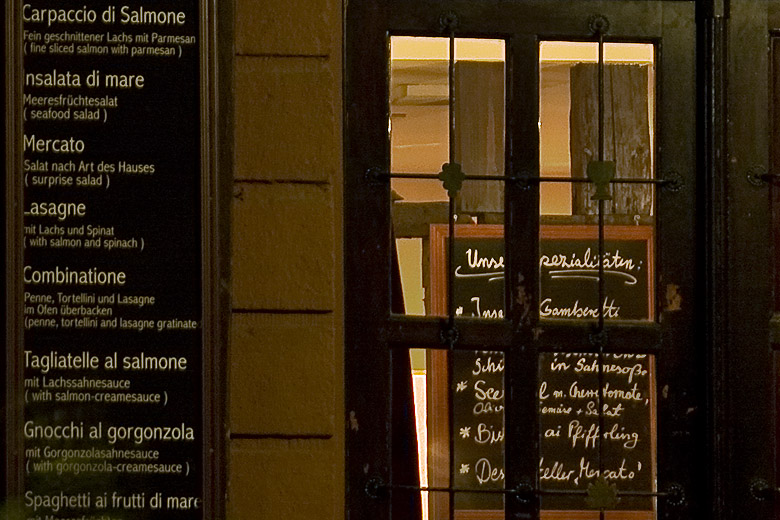 Carpaccio di Salmone
Fein geschnittener Lachs mit Parmesan
( fine sliced salmon with parmesan )
nsalata di mare
Meeresfrüchtesalat
( seafood salad )
Mercato
Salat nach Art des Hauses
( surprise salad )
Lasagne
mit Lachs und Spinat
( with salmon and spinach )
Combinatione
Penne, Tortellini und Lasagne
im Ofen überbacken
(penne, tortellini and lasagne gratinate
Tagliatelle al salmone
mit Lachssahnesauce
( with salmon-creamesauce )
Gnocchi al gorgonzola
mit Gorgonzolasahnesauce
( with gorgonzola-creamesauce )
Spaghetti ai frutti di mare
Unse pezialitäten:
* Inse Gamberetti
in Sahnesoße
* See l m. Cherrytomate,
+ Salat
* Bis ai Pfifferling
* Des teller "Mercato"